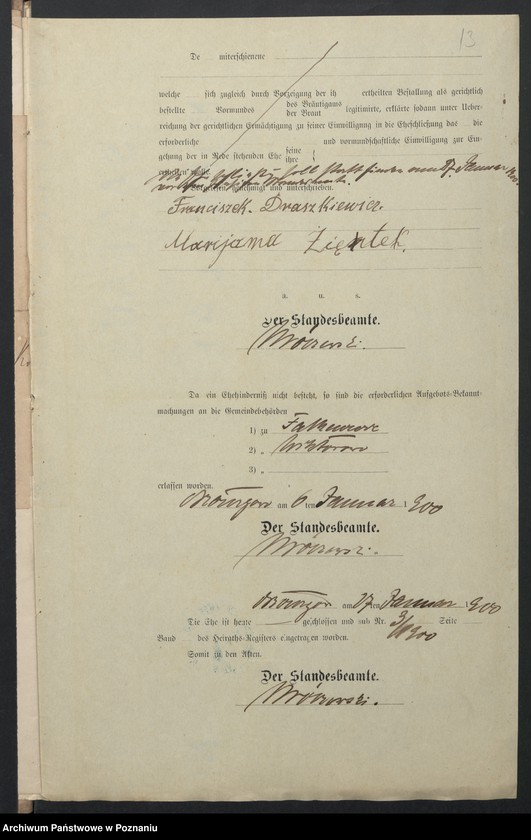 13
De miterschienene
welche sich zugleich durch Vorzeigung der ih ertheilten Bestallung als gerichtlich
bestellte Vormundes des Bräutigams
der Braut legitimirte, erklärte sodann unter Ueber-
reichung der gerichtlichen Ermächtigung zu seiner Einwilligung in die Eheschließung das die
erforderliche und vormundschaftliche Einwilligung zur Ein-
gehung der in Rede stehenden Ehe seine
ihre
ertheilen wolle.
soll stattfinden am 27. Januar 1900.
Vorgelesen, genehmigt und unterschrieben.
Franciszek. Draszkiewicz.
Marijanna Ziętek.
a. u. s.
Der Standesbeamte.
Da ein Ehehinderniß nicht besteht, so sind die erforderlichen Aufgebots-Bekannt-
machungen an die Gemeindebehörden
1) zu
2) „
3) „
erlassen worden.
am 6 ten Januar 1900
Der Standesbeamte.
am 27 ten Januar 1900
Die Ehe ist heute geschlossen und sub Nr. 3/1900 Seite
Band des Heiraths-Registers eingetragen worden.
Somit zu den Akten.
Der Standesbeamte.
Archiwum Państwowe w Poznaniu